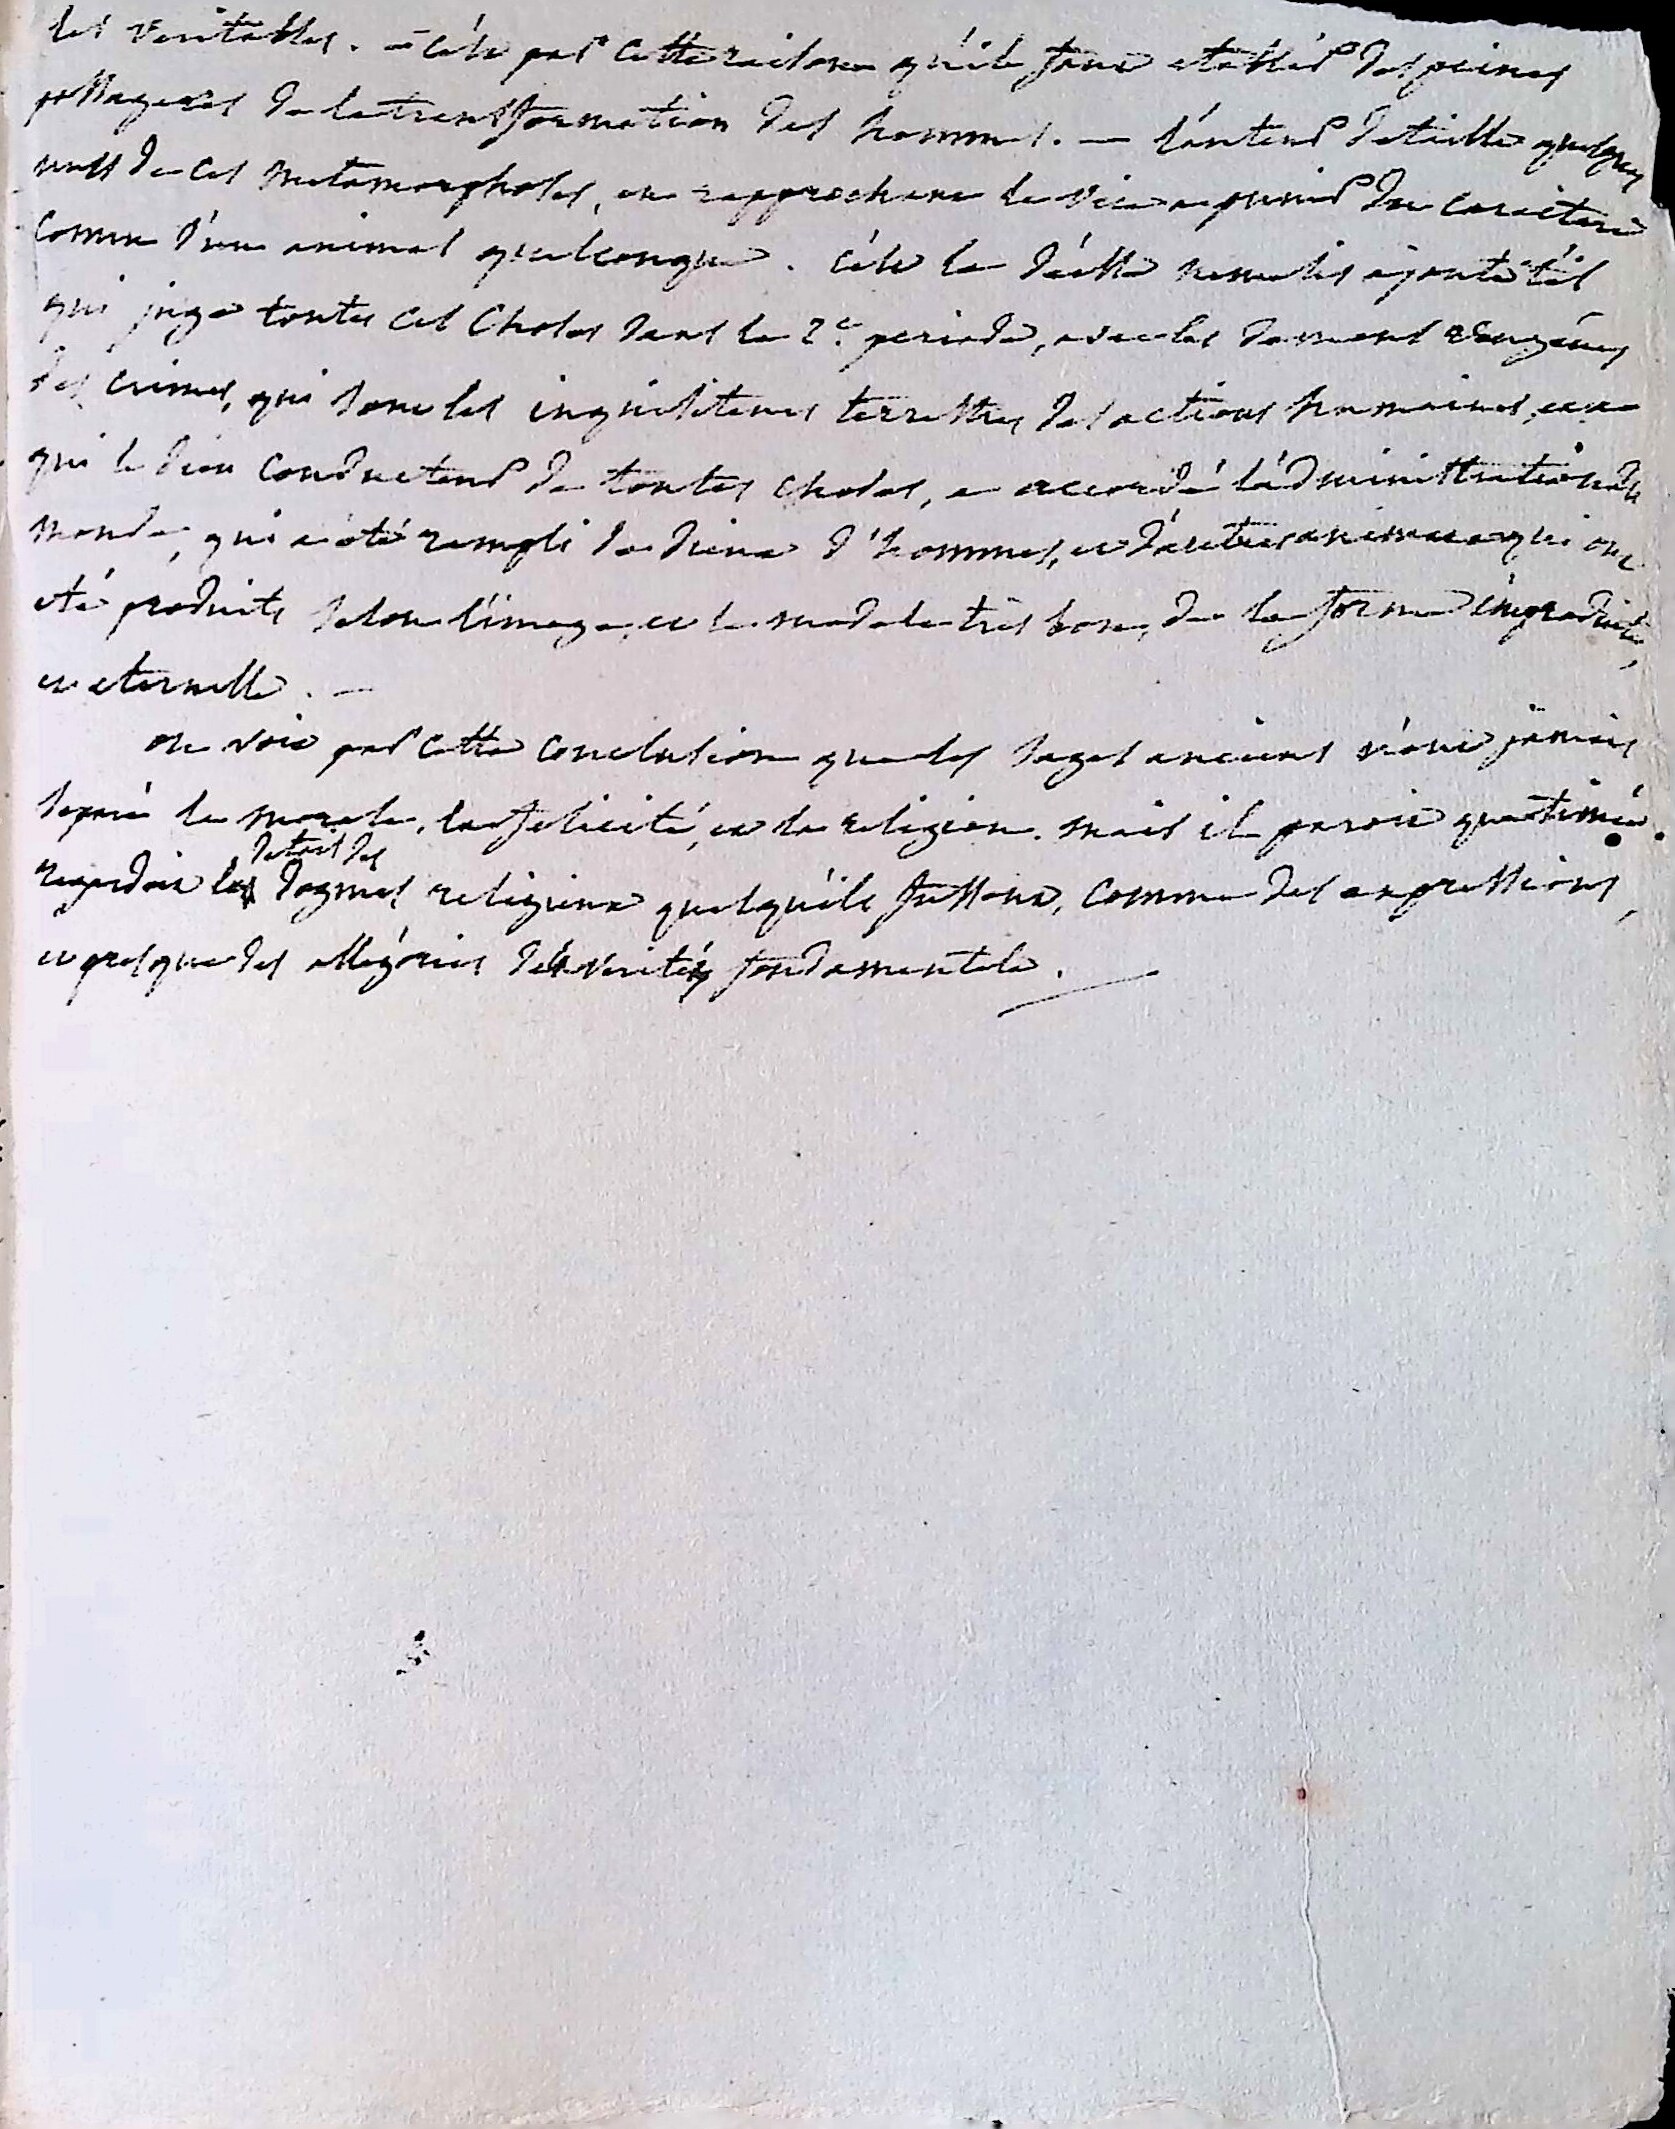 les veritables. — c'est par cette raison qu'ils sont etablis des peines
passageres de la transformation des hommes. — l'auteur detaille quelques
unes de ces metamorphoses, en rapprochant le vice a punir du caractere
connu d'un animal quelconque. c'est la déesse nemesis ajoute t'il
qui juge toutes ces choses dans la 2e. periode, avec les demons vengeurs
des crimes, qui sont les inquisiteurs terrestres des actions humaines, et a
qui le dieu conducteur de toutes choses, a accordé l'administration du
monde, qui a été rempli de dieux d'hommes, et d'autres animaux qui ont
eté produits selon l'image, et le modele très bon, de la forme improduite,
et eternelle. —
on voit par cette conclusion que les sages anciens n'ont jamais
separé la morale, la felicité, et la religion. mais il paroit que timée
regardoit les detail des dogmes religieux quelqu'ils fussent, comme des expressions,
et presque des allégories de verité fondamentale.